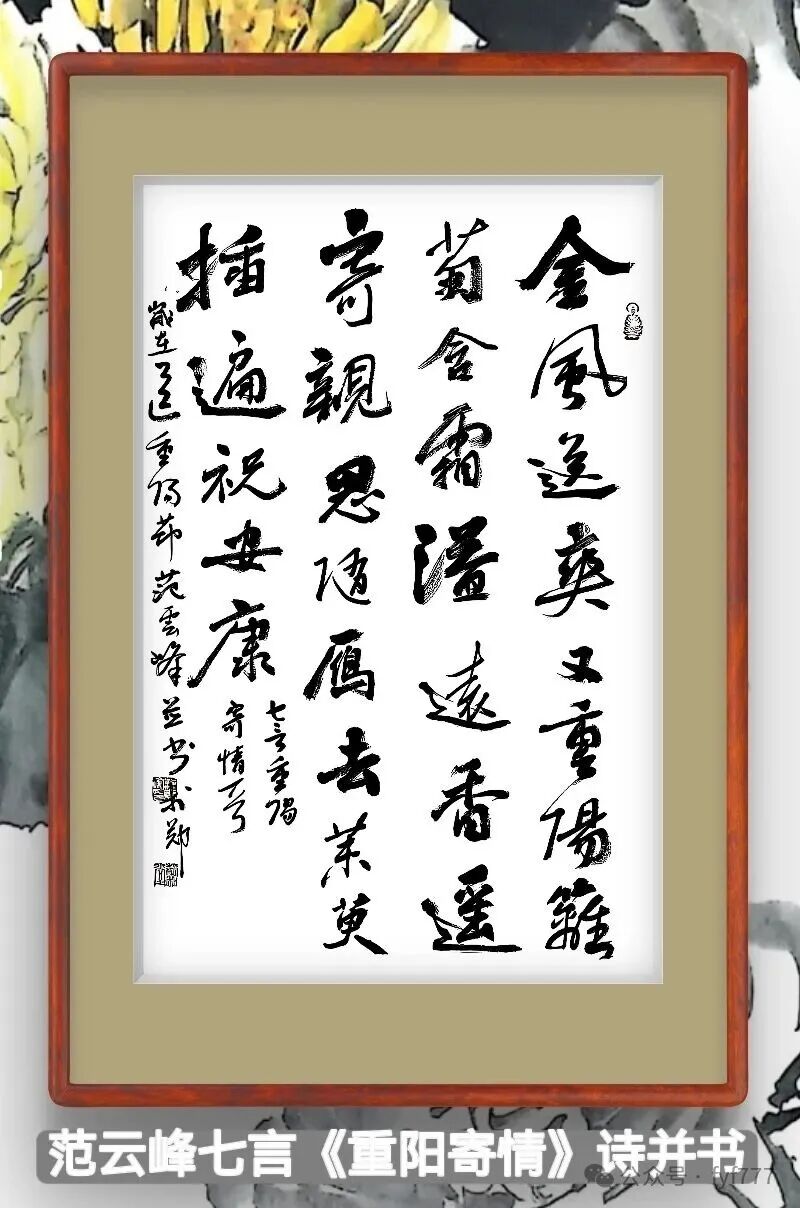 金風送爽又重陽籬
菊含霜溢遠香遥
寄親思隨雁去茱萸
插遍祝安康
七言重陽
寄情一首
歲在乙巳重陽節范雲峰並书於鄭
范云峰七言《重阳寄情》诗并书
公众号·fyf777